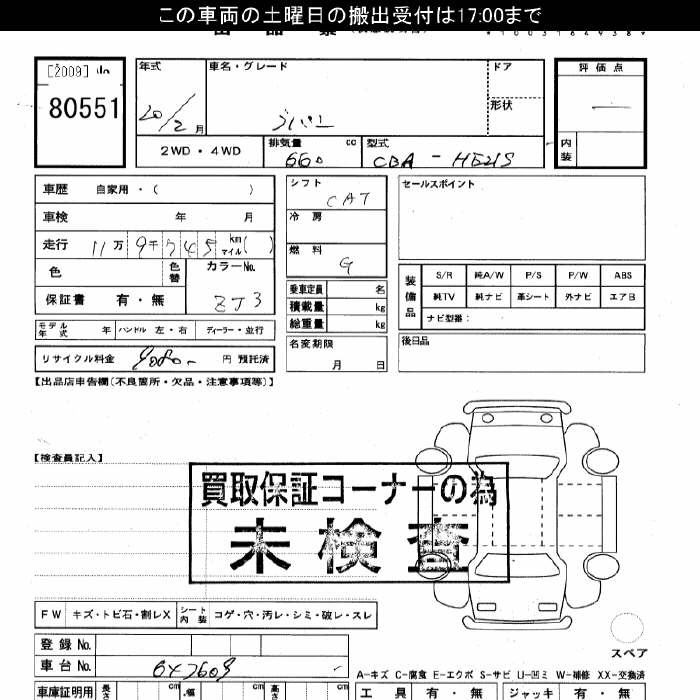 この車両の土曜日の搬出受付は17:00まで
[2009]
80551
年式
20/2月
車名・グレード
ラパン
ドア
形状
評価点
内装
2WD・4WD
排気量 cc
660
型式
CBA - HE21S
車歴 自家用・( )
車検 年 月
走行 11万9千745 km マイル( )
色 色替
カラーNo.
ZJ3
保証書 有・無
シフト
CAT
冷房
燃料
G
乗車定員 名
積載量 kg
総重量 kg
セールスポイント
装備品
S/R 純A/W P/S P/W ABS
純TV 純ナビ 革シート 外ナビ エアB
ナビ型番:
モデル年式 年 ハンドル 左・右 ディーラー・並行
リサイクル料金 円 預託済
名変期限
月 日
後日品
【出品店申告欄(不良箇所・欠品・注意事項等)】
【検査員記入】
買取保証コーナーの為
未検査
FW キズ・トビ石・割レX シート内装 コゲ・穴・汚レ・シミ・破レ・スレ
登録No.
車台No.
スペア
A-キズ C-腐食 E-エクボ S-サビ U-凹ミ W-補修 XX-交換済
車庫証明用 長さ cm 幅 cm 高さ cm
工具 有・無 ジャッキ 有・無